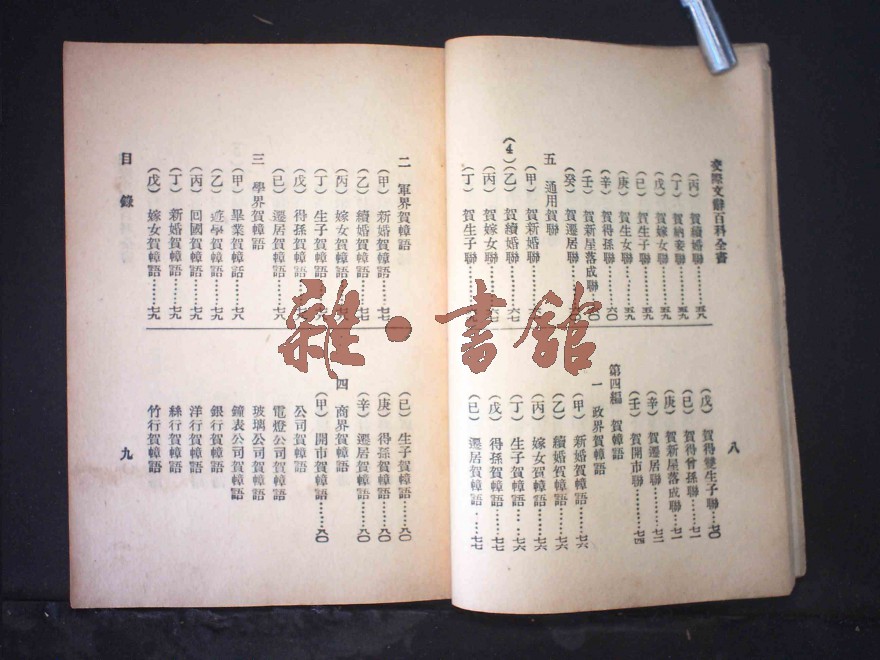 交際文辭百科全書
(丙) 賀續婚聯……五九
(丁) 賀納妾聯……五九
(戊) 賀嫁女聯……五九
(己) 賀生子聯……五九
(庚) 賀生女聯……五九
(辛) 賀得孫聯……六〇
(壬) 賀新屋落成聯……六〇
(癸) 賀遷居聯……
五 通用賀聯
(甲) 賀新婚聯
(乙) 賀續婚聯……六六
(丙) 賀嫁女聯……六七
(丁) 賀生子聯
(戊) 賀得雙生子聯……七〇
(己) 賀得曾孫聯……七一
(庚) 賀新屋落成聯……七一
(辛) 賀遷居聯……七二
(壬) 賀開市聯……七四
第四編 賀幛語
一 政界賀幛語
(甲) 新婚賀幛語……七六
(乙) 續婚賀幛語……七六
(丙) 嫁女賀幛語……七六
(丁) 生子賀幛語……七六
(戊) 得孫賀幛語……七七
(己) 遷居賀幛語……七七
八
二 軍界賀幛語
(甲) 新婚賀幛語……七七
(乙) 續婚賀幛語……七七
(丙) 嫁女賀幛語
(丁) 生子賀幛語
(戊) 得孫賀幛語
(己) 遷居賀幛語……七八
三 學界賀幛語
(甲) 畢業賀幛話……七八
(乙) 遊學賀幛語……七九
(丙) 回國賀幛語……七九
(丁) 新婚賀幛語……七九
(戊) 嫁女賀幛語……七九
(己) 生子賀幛語……八〇
(庚) 得孫賀幛語……八〇
(辛) 遷居賀幛語……八〇
四 商界賀幛語
(甲) 開市賀幛語……八〇
公司賀幛語
電燈公司賀幛語
玻璃公司賀幛語
鐘表公司賀幛語
銀行賀幛語
洋行賀幛語
絲行賀幛語
竹行賀幛語
目錄
九
雜·書館